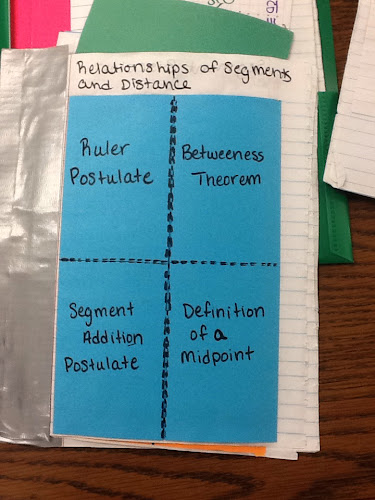 Relationships of Segments
and Distance
Ruler
Postulate
Betweeness
Theorem
Segment
Addition
Postulate
Definition
of a
midpoint